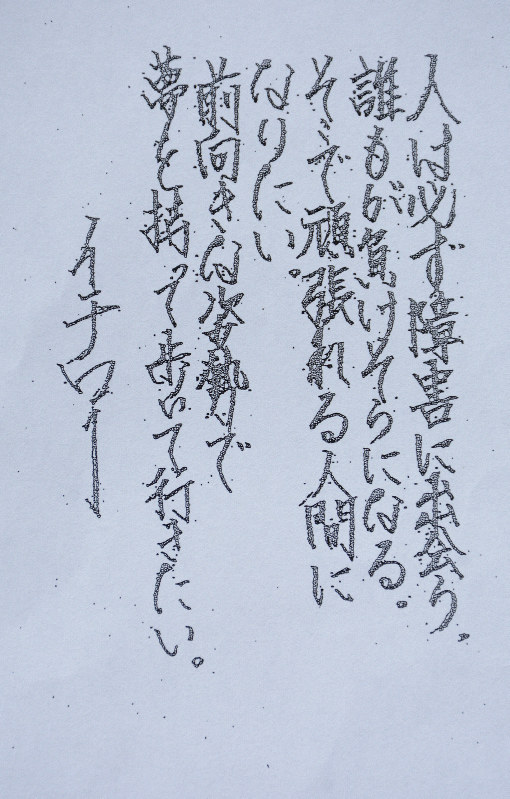 人は必ず障害に出会う。
誰もが負けそうになる。
そこで頑張れる人間に
なりたい。
前向きな姿勢で
夢を持って歩いて行きたい。
イチロー